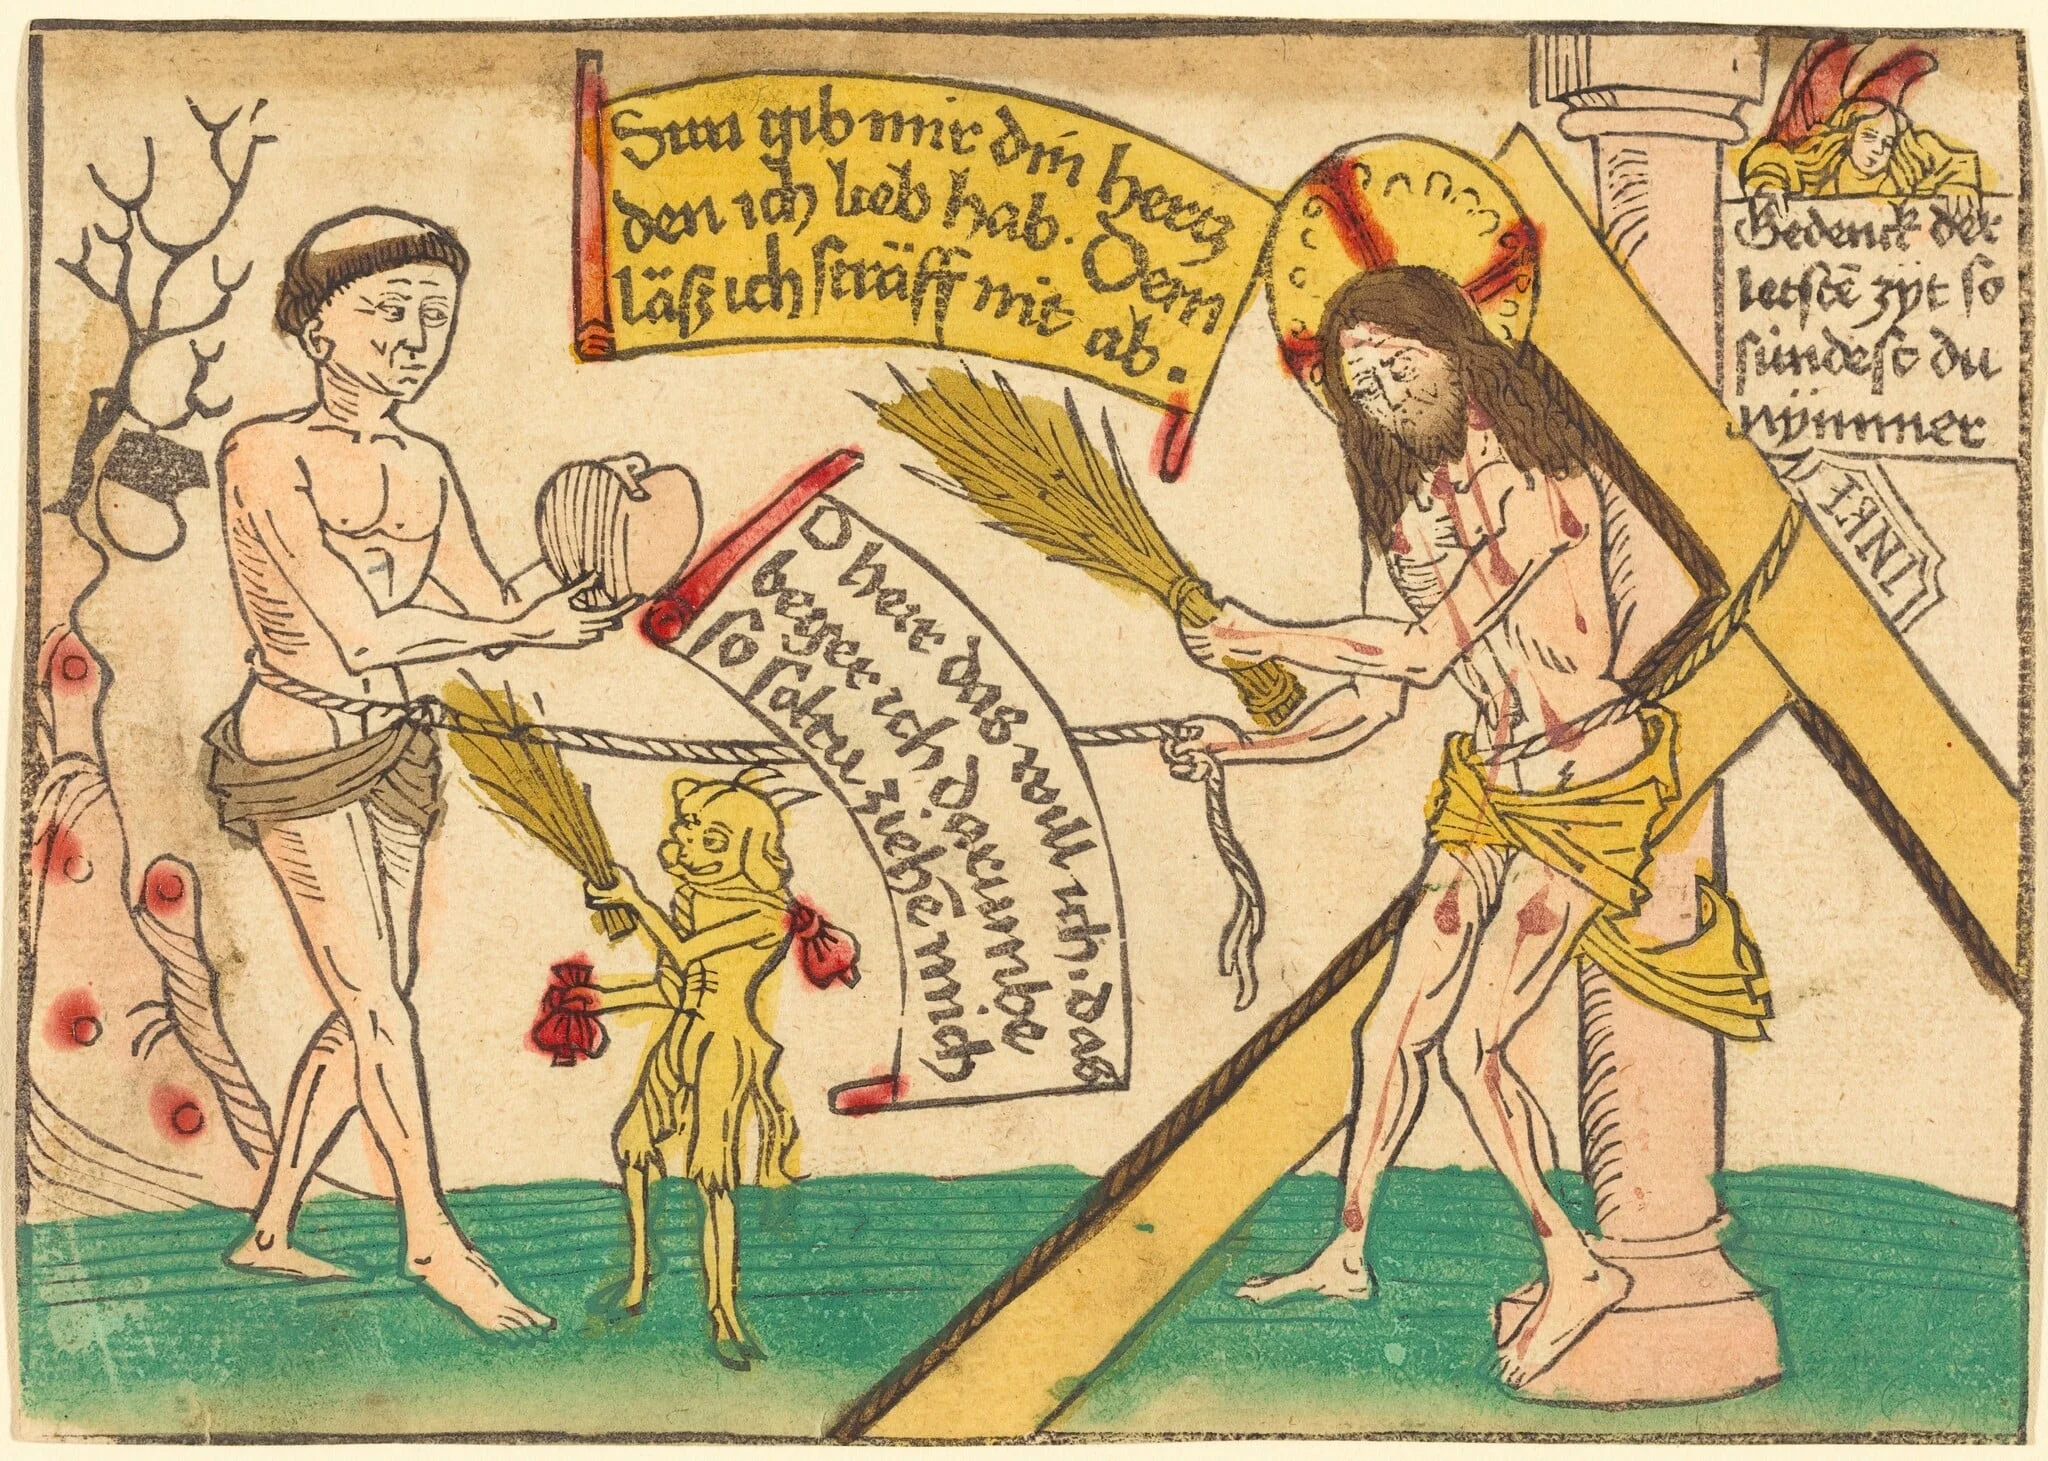 Sun gib mir din hertz
den ich lieb hab. Dem
läsz ich sträff nit ab.
O herr das will ich. das
beger ich darumbe
so soltu ziehē mich
Gedenck der
letstē zÿt so
sündest du
nÿmmer
INRI